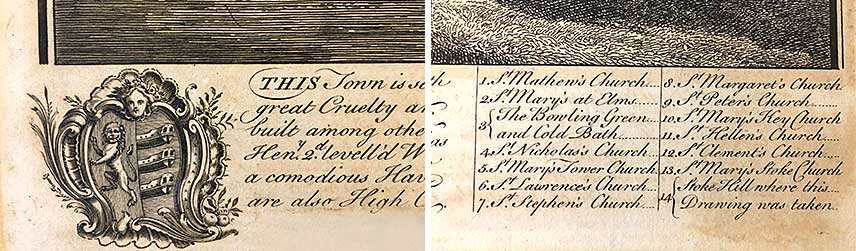 THIS Town is se
great Cruelty an
built among othe
Hen.y 2.d levell'd W
a comodious Hav
are also High C
as
1. S.t Mathew's Church
2. S.t Mary's at Elms
3 { The Bowling Green
and Cold Bath
4. S.t Nicholas's Church
5. S.t Mary's Tower Church
6. S.t Lawrence's Church
7. S.t Stephen's Church
8. S.t Margaret's Church
9. S.t Peter's Church
10. S.t Mary's Key Church
11. S.t Hellen's Church
12. S.t Clement's Church
13. S.t Mary's Stoke Church
14 { Stoke Hill where this
Drawing was taken